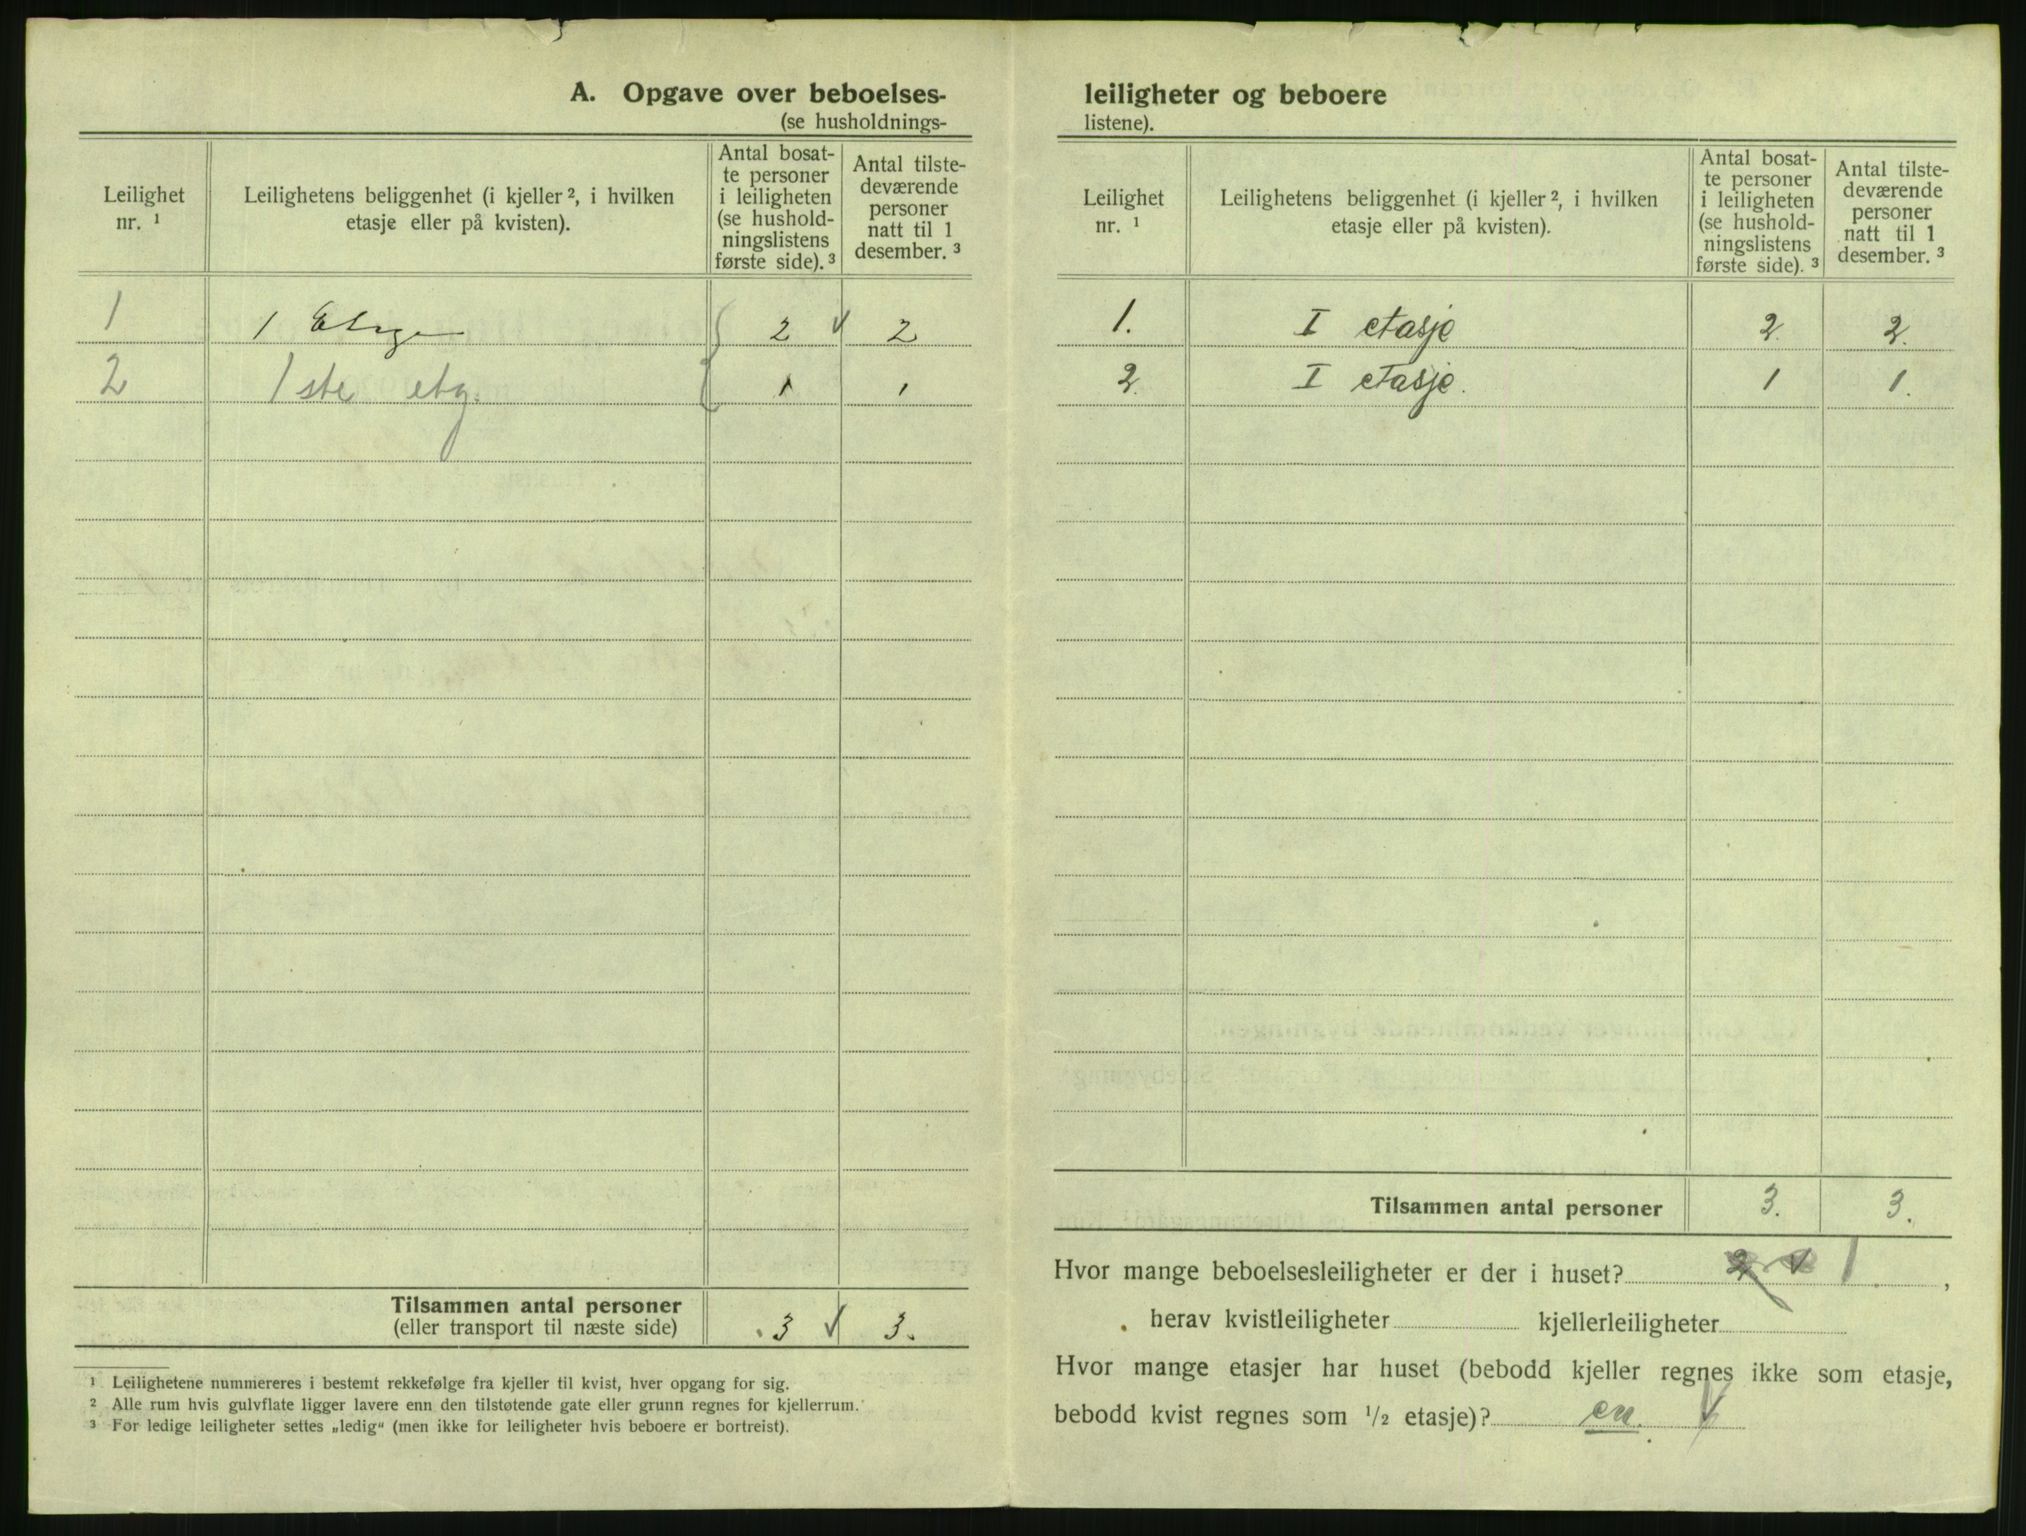 A. Opgave over beboelses-
(se husholdnings-
Leilighet nr. ¹
Leilighetens beliggenhet (i kjeller ², i hvilken etasje eller på kvisten).
Antal bosat-
te personer
i leiligheten
(se hushold-
ningslistens
første side). ³
Antal tilste-
deværende
personer
natt til 1
desember. ³
1 1 Etage 2 √ 2
2 1ste etg. 1 1
Tilsammen antal personer
(eller transport til næste side) 3 √ 3.
¹ Leilighetene nummereres i bestemt rekkefølge fra kjeller til kvist, hver opgang for sig.
² Alle rum hvis gulvflate ligger lavere enn den tilstøtende gate eller grunn regnes for kjellerrum.
³ For ledige leiligheter settes „ledig“ (men ikke for leiligheter hvis beboere er bortreist).
leiligheter og beboere
listene).
Leilighet nr. ¹
Leilighetens beliggenhet (i kjeller ², i hvilken etasje eller på kvisten).
Antal bosat-
te personer
i leiligheten
(se hushold-
ningslistens
første side). ³
Antal tilste-
deværende
personer
natt til 1
desember. ³
1. I etasje 2. 2.
2. I etasje. 1 1.
Tilsammen antal personer 3. 3.
Hvor mange beboelsesleiligheter er der i huset? 2 √ 1.,
herav kvistleiligheter kjellerleiligheter
Hvor mange etasjer har huset (bebodd kjeller regnes ikke som etasje,
bebodd kvist regnes som ¹/₂ etasje)? en. √